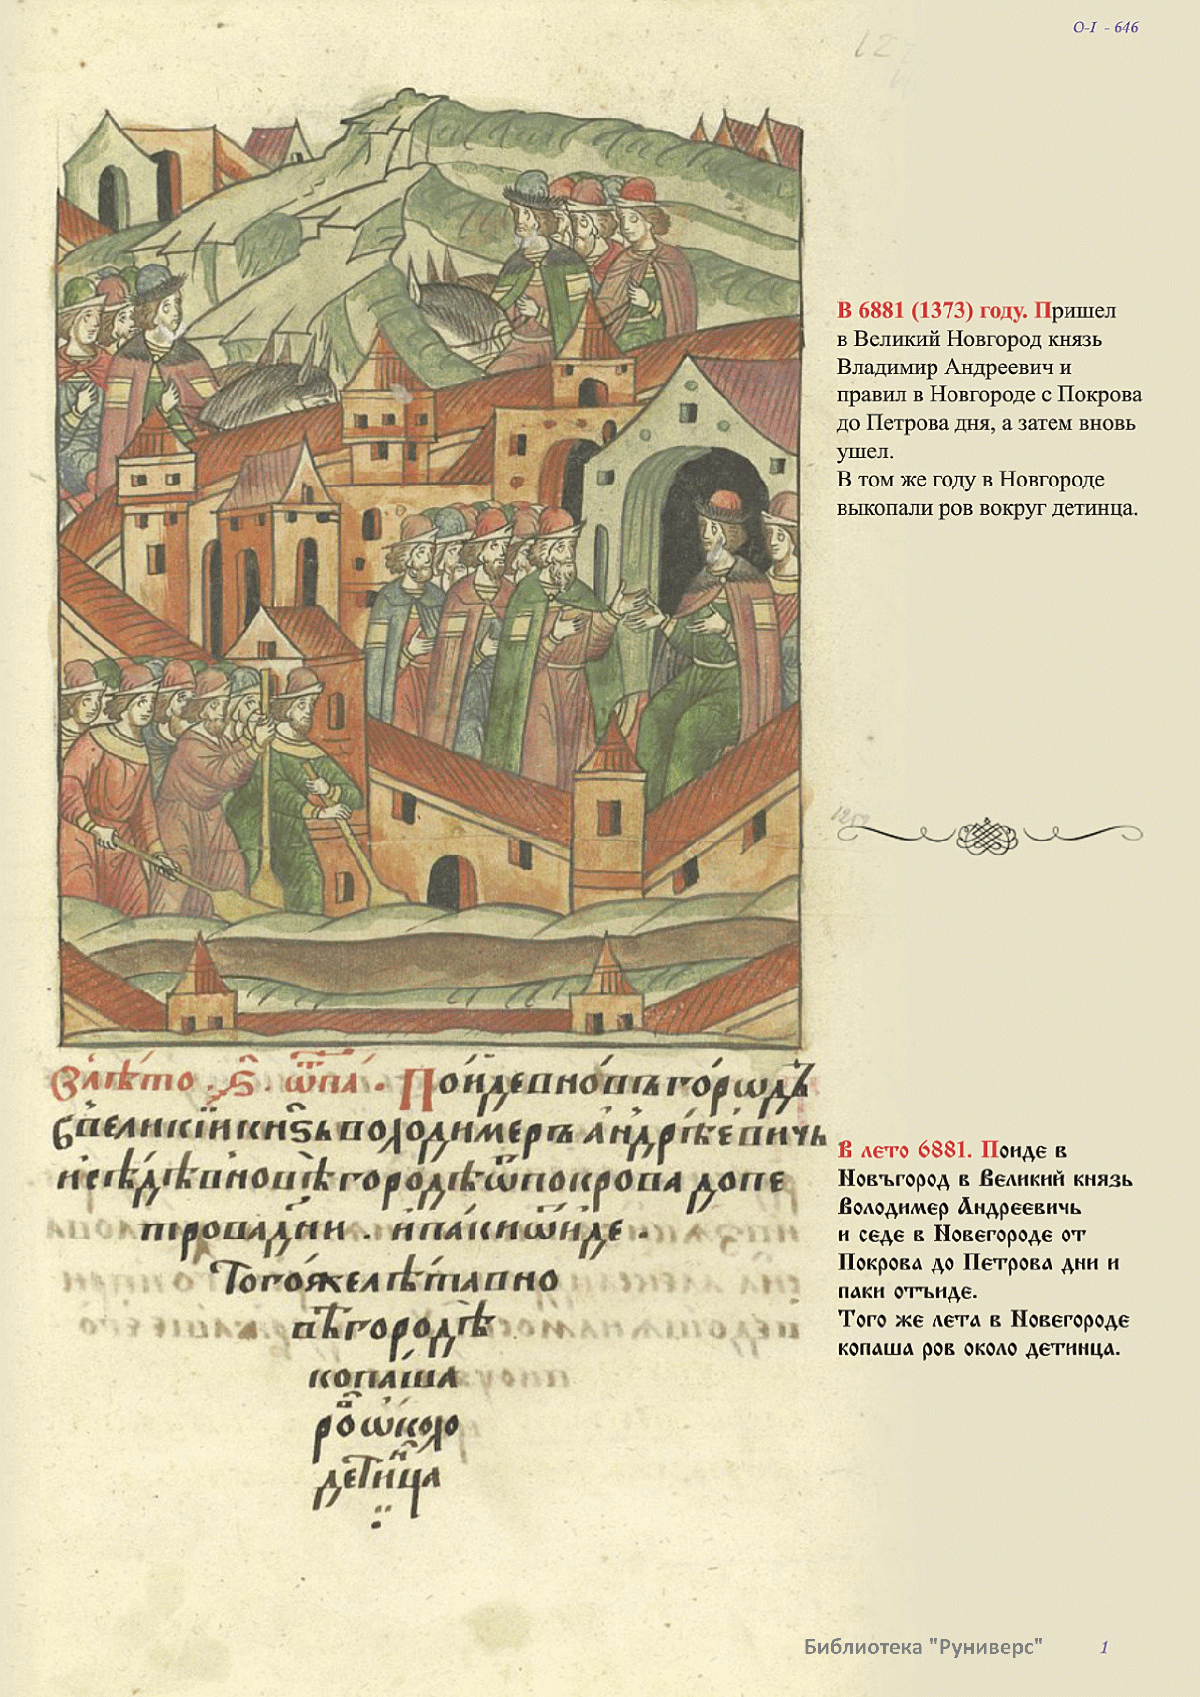 O-I - 646
В 6881 (1373) году. Пришел
в Великий Новгород князь
Владимир Андреевич и
правил в Новгороде с Покрова
до Петрова дня, а затем вновь
ушел.
В том же году в Новгороде
выкопали ров вокруг детинца.
В лѣто . ҂ѕ . ѿпа . Поидевновъгорѡдъ
ввеликїикнѕьволодимеръандрѣевичь
исѣдѣвновѣгородѣѿпокровадопе
тровадни . ипакиѿиде .
Тогожелѣтавно
вѣгородѣ
копаша
ровѡколо
детинца
В лето 6881. Поиде в
Новъгород в Великий князь
Володимер Андреевичь
и седе в Новегороде от
Покрова до Петрова дни и
паки отъиде.
Того же лета в Новегороде
копаша ров около детинца.
Библиотека "Руниверс" 1